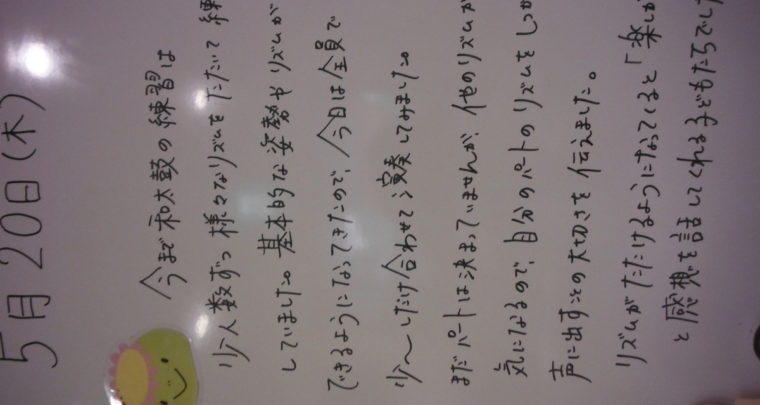 5月20日(木)
今まで和太鼓の練習は
少人数ずつ様々なリズムをたたいて練
していました。基本的な姿勢やリズムが
できるようになってきたので、今日は全員で
少〜しだけ合わせて演奏してみました。
まだパートは決まっていませんが、他のリズムが
気になるので、自分のパートのリズムをしっか
声に出すことの大切さを伝えました。
リズムがたたけるようになってくると「楽しか
と感想を話してくれる子どもたちでした